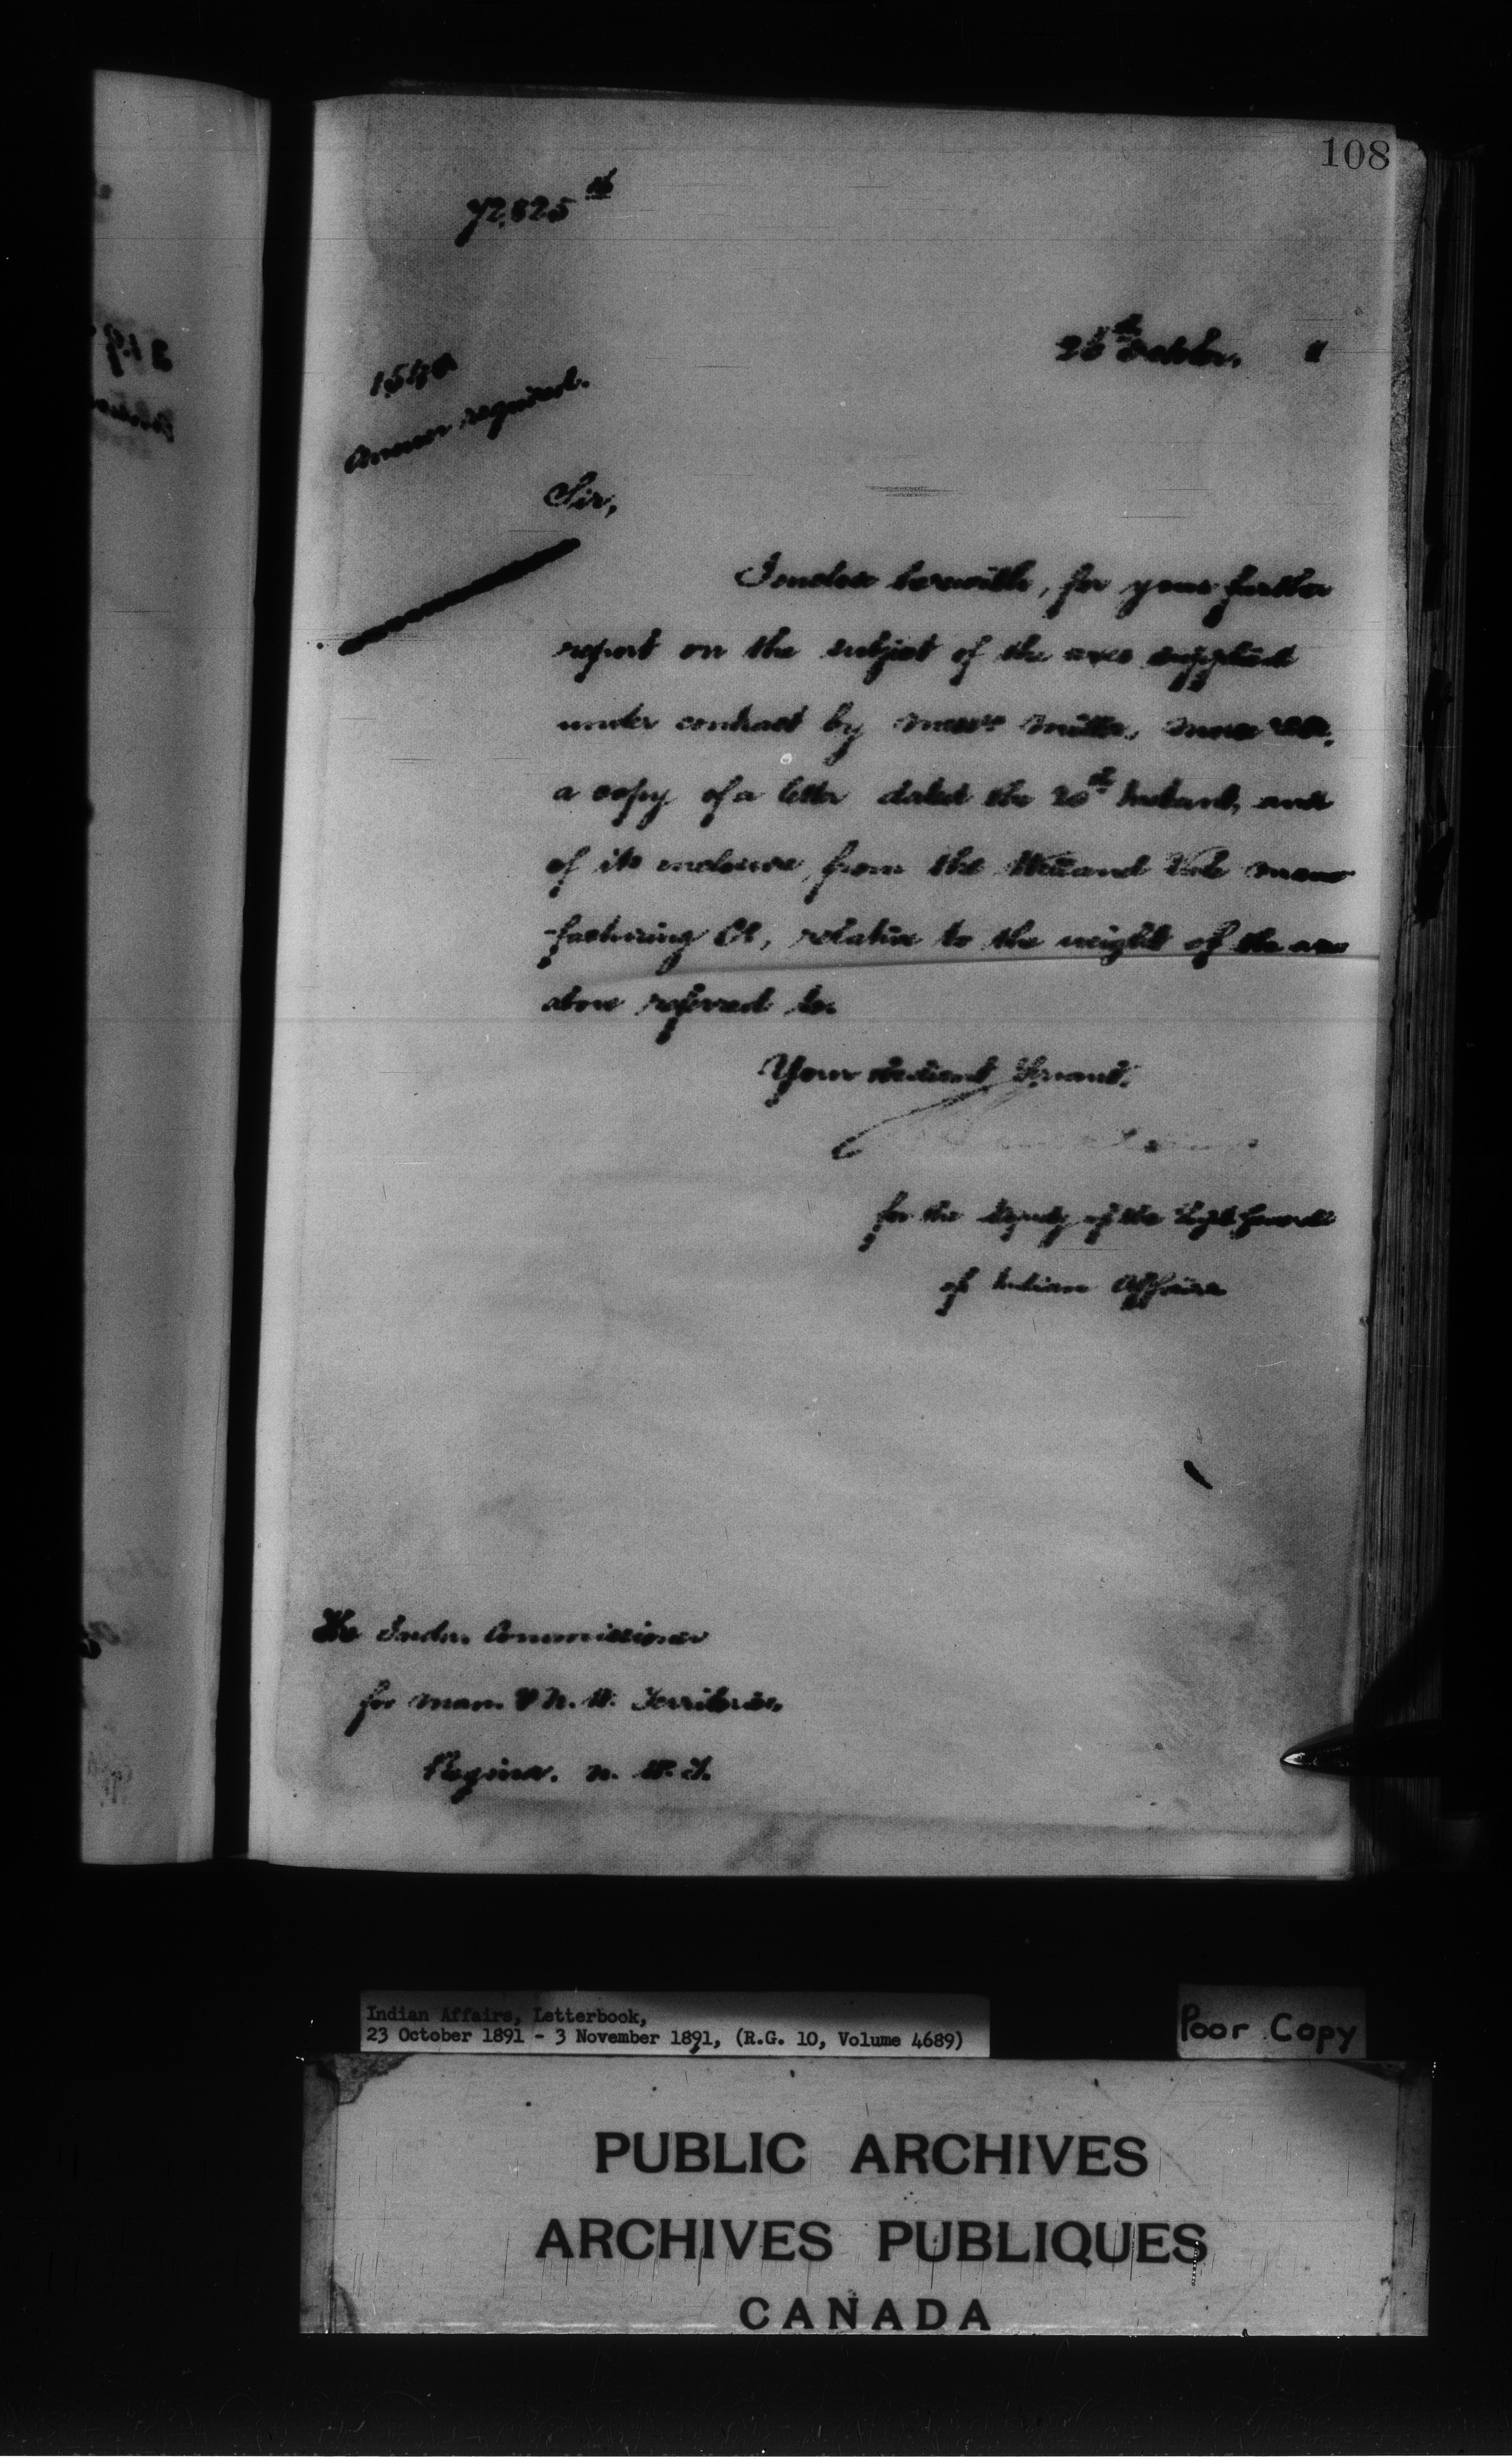 108
Answer required.
Sir,
I enclose herewith, for your further
report on the subject of the axes supplied
under contract by Messrs Miller, Morse
a copy of a letter dated the 20th Instant, and
of its enclosure from the Welland Vale Manu
-facturing Co, relative to the weight of the axes
above referred to.
Your obedient Servant,
for the Deputy of the Supt General
of Indian Affairs
The Indian Commissioner
for Man. & N. W. Territories,
Regina. N. W. T.
Indian Affairs, Letterbook,
23 October 1891 - 3 November 1891, (R.G. 10, Volume 4689)
Poor Copy
PUBLIC ARCHIVES
ARCHIVES PUBLIQUES
CANADA